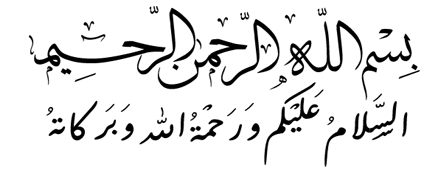 بِسْمِ اللّٰهِ الرَّحْمٰنِ الرَّحِيْمِ
السَّلَامُ عَلَيْكُمْ وَرَحْمَةُ اللهِ وَبَرَكَاتهُ